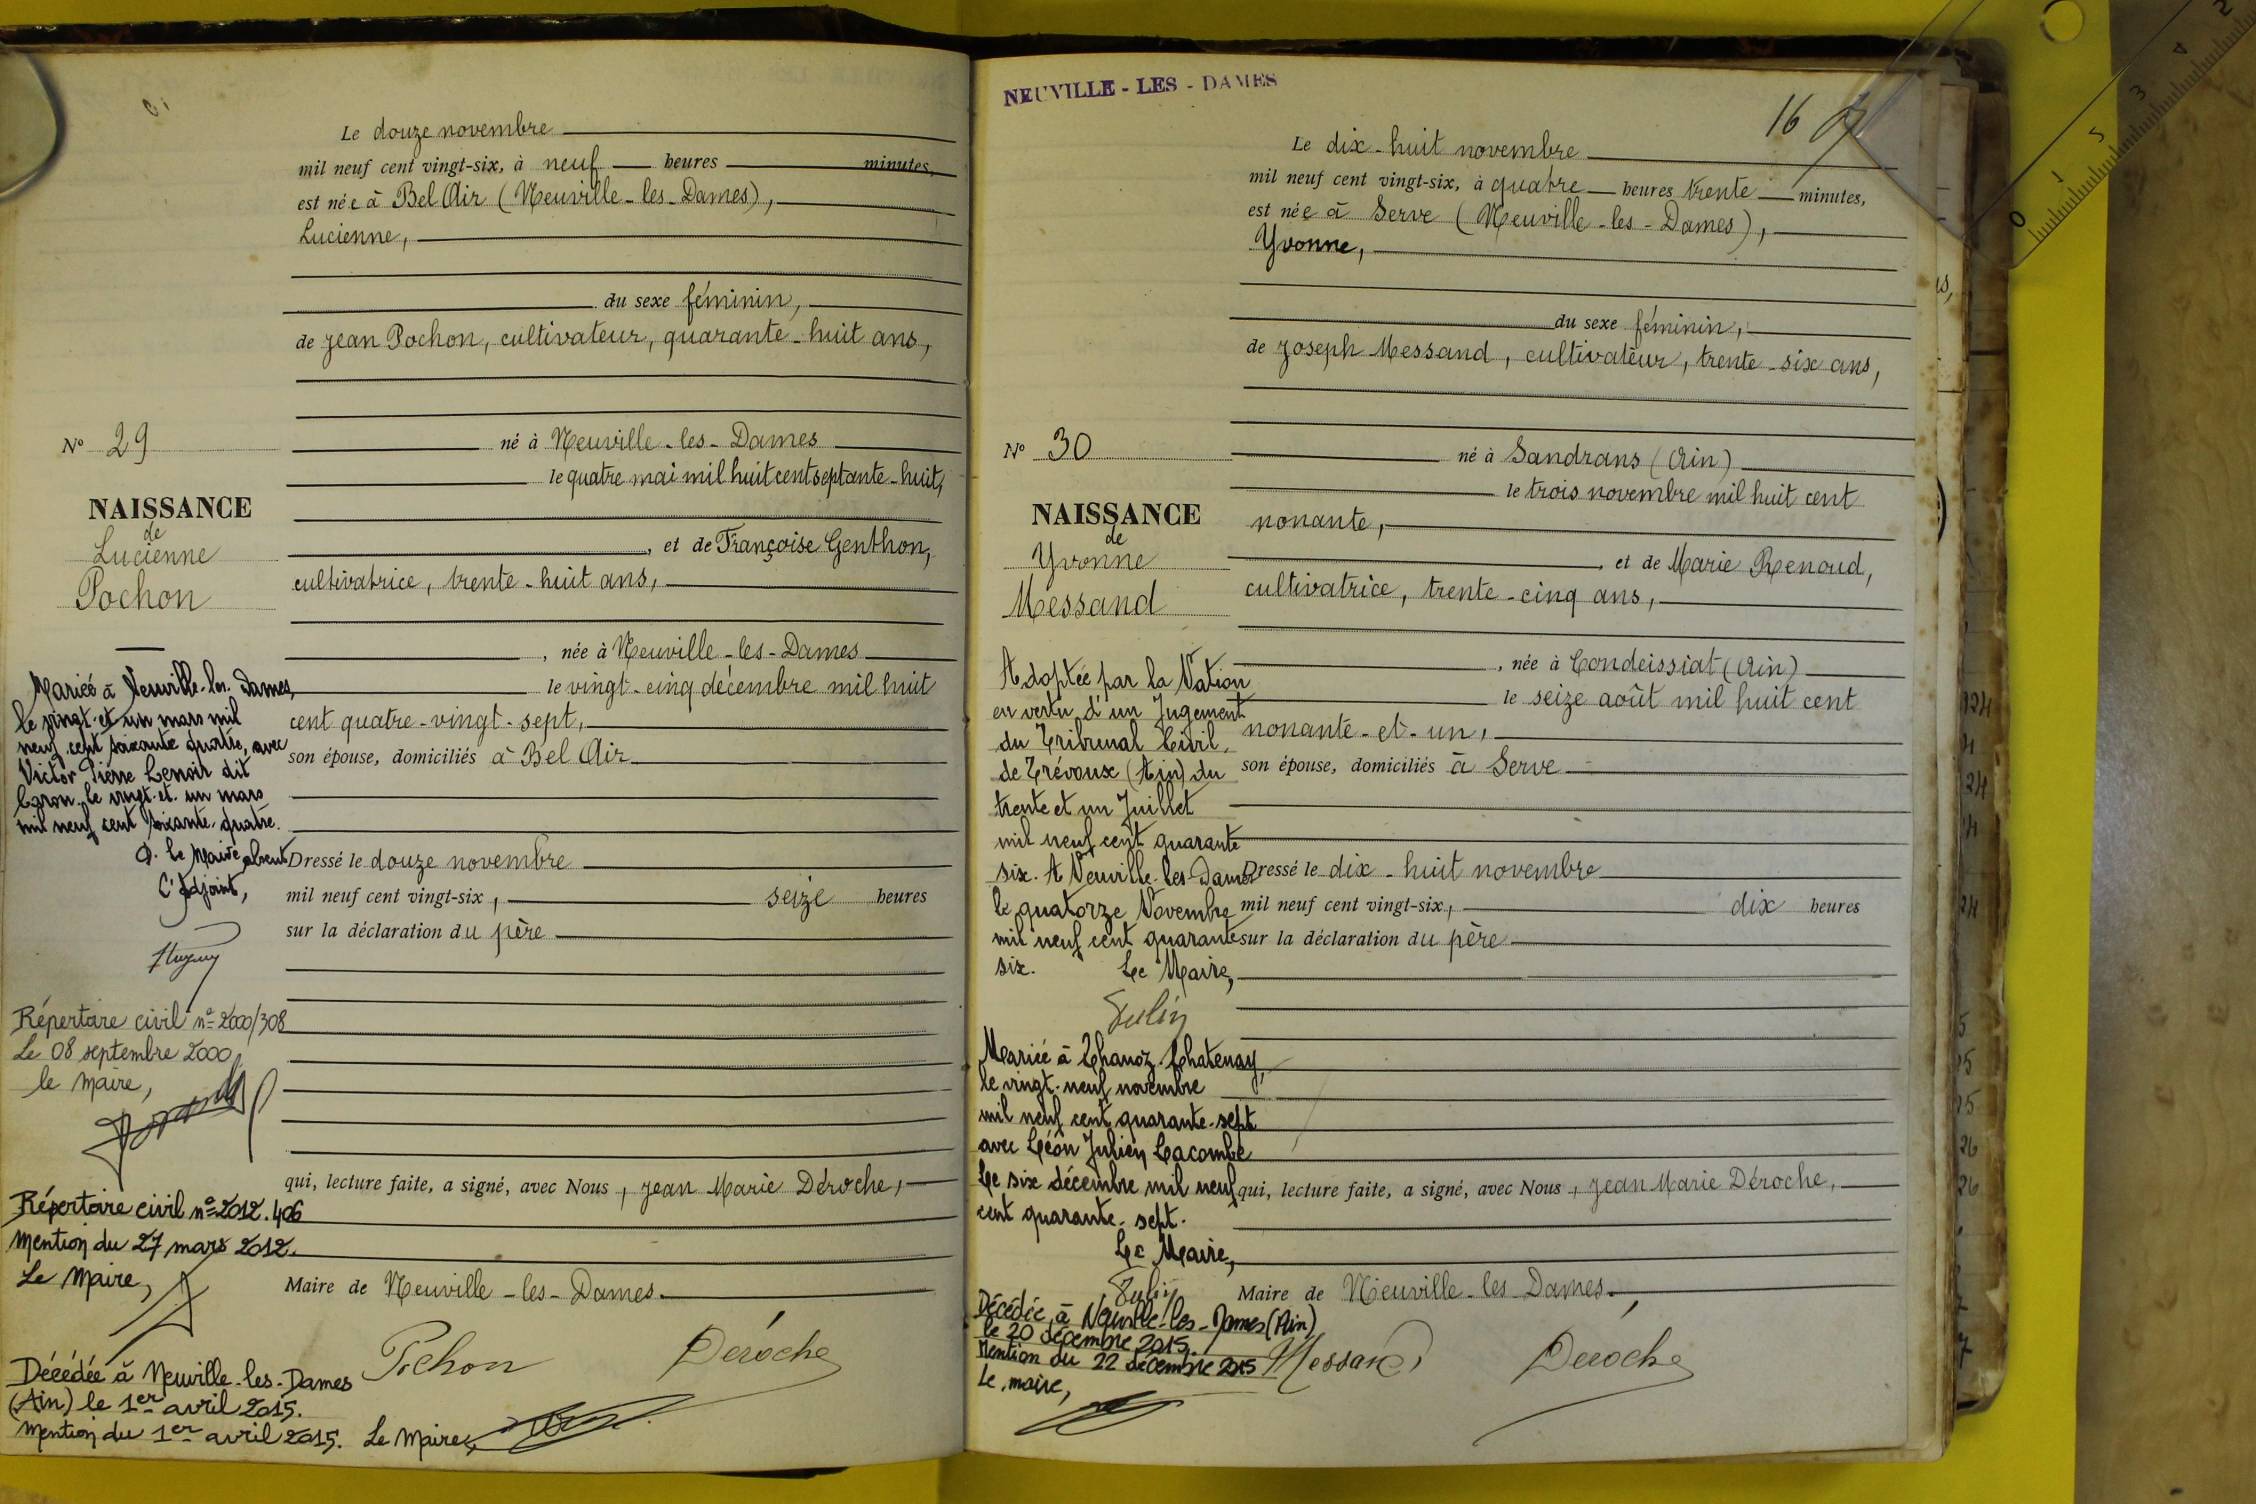 Le douze novembre
mil neuf cent vingt-six, à neuf heures minutes,
est née à Bel Air (Neuville-les-Dames),
Lucienne,
du sexe féminin,
de Jean Pochon, cultivateur, quarante-huit ans,
né à Neuville-les-Dames
le quatre mai mil huit cent septante-huit,
, et de Françoise Genthon,
cultivatrice, trente-huit ans,
, née à Neuville-les-Dames
le vingt-cinq décembre mil huit
cent quatre-vingt-sept,
son épouse, domiciliés à Bel Air
Dressé le douze novembre
mil neuf cent vingt-six, seize heures
sur la déclaration du père
qui, lecture faite, a signé, avec Nous, Jean Marie Déroche,
Maire de Neuville-les-Dames.
Pochon Déroche
N° 29
NAISSANCE
de
Lucienne
Pochon
Mariée à Neuville-les-Dames,
le vingt-et-un mars mil
neuf cent soixante quatre, avec
Victor Pierre Lenoir dit
Caron. Le vingt-et-un mars
mil neuf cent soixante-quatre.
P. Le Maire absent
L'Adjoint,
Répertoire civil n° 2000/308
Le 08 septembre 2000
le Maire,
Répertoire civil n° 2012.406
Mention du 27 mars 2012.
Le Maire,
Décédée à Neuville-les-Dames
(Ain) le 1er avril 2015.
Mention du 1er avril 2015. Le Maire,
NEUVILLE - LES - DAMES
16
Le dix-huit novembre
mil neuf cent vingt-six, à quatre heures trente minutes,
est née à Serve (Neuville-les-Dames),
Yvonne,
du sexe féminin,
de Joseph Messand, cultivateur, trente-six ans,
né à Sandrans (Ain)
le trois novembre mil huit cent
nonante,
, et de Marie Renoud,
cultivatrice, trente-cinq ans,
, née à Condeissiat (Ain)
le seize août mil huit cent
nonante-et-un,
son épouse, domiciliés à Serve
Dressé le dix-huit novembre
mil neuf cent vingt-six, dix heures
sur la déclaration du père
qui, lecture faite, a signé, avec Nous, Jean Marie Déroche,
Maire de Neuville-les-Dames.
Messand Déroche
N° 30
NAISSANCE
de
Yvonne
Messand
Adoptée par la Nation
en vertu d'un Jugement
du Tribunal Civil
de Trévoux (Ain) du
trente et un Juillet
mil neuf cent quarante
six. A Neuville-les-Dames
le quatorze Novembre
mil neuf cent quarante
six. Le Maire,
Tulin
Mariée à Chanoz-Chatenay,
le vingt-neuf novembre
mil neuf cent quarante-sept
avec Léon Julien Lacombe
Le six décembre mil neuf
cent quarante-sept.
Le Maire,
Tulin
Décédée à Neuville-les-Dames (Ain)
le 20 décembre 2015.
Mention du 22 décembre 2015
Le maire,